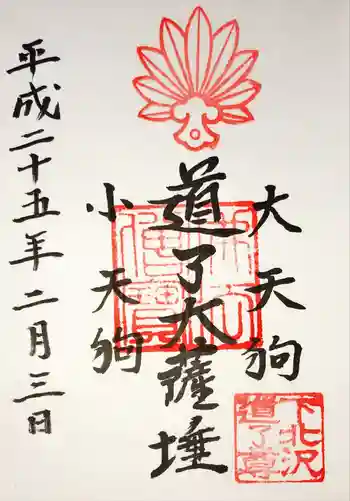 大天狗
道了大薩埵
小天狗
平成二十五年二月三日
佛法僧寳
下北沢
道了尊